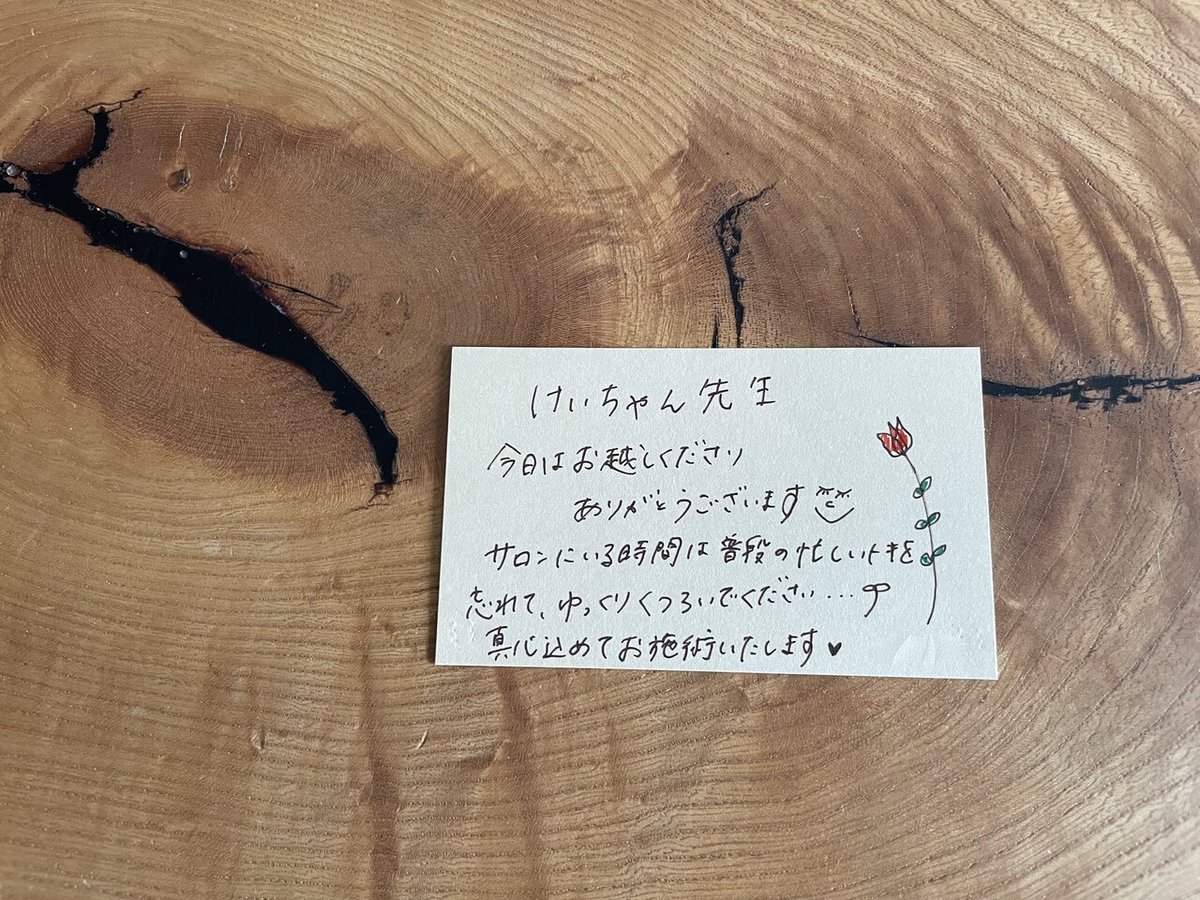 けいちゃん先生
今日はお越しくださり
ありがとうございます
サロンにいる時間は普段の忙しい時を
忘れて、ゆっくりくつろいでください…
真心込めてお施術いたします♥